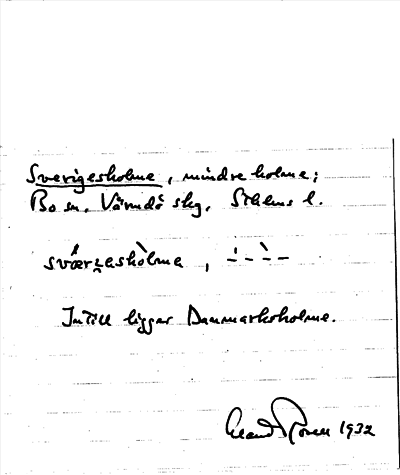 Sverigesholme, mindre holme;
Bo sn, Värmdö skg, Sthlms l.
svær̯asholma, –́ – –̀ –
Intill ligger Danmarksholme.
1932